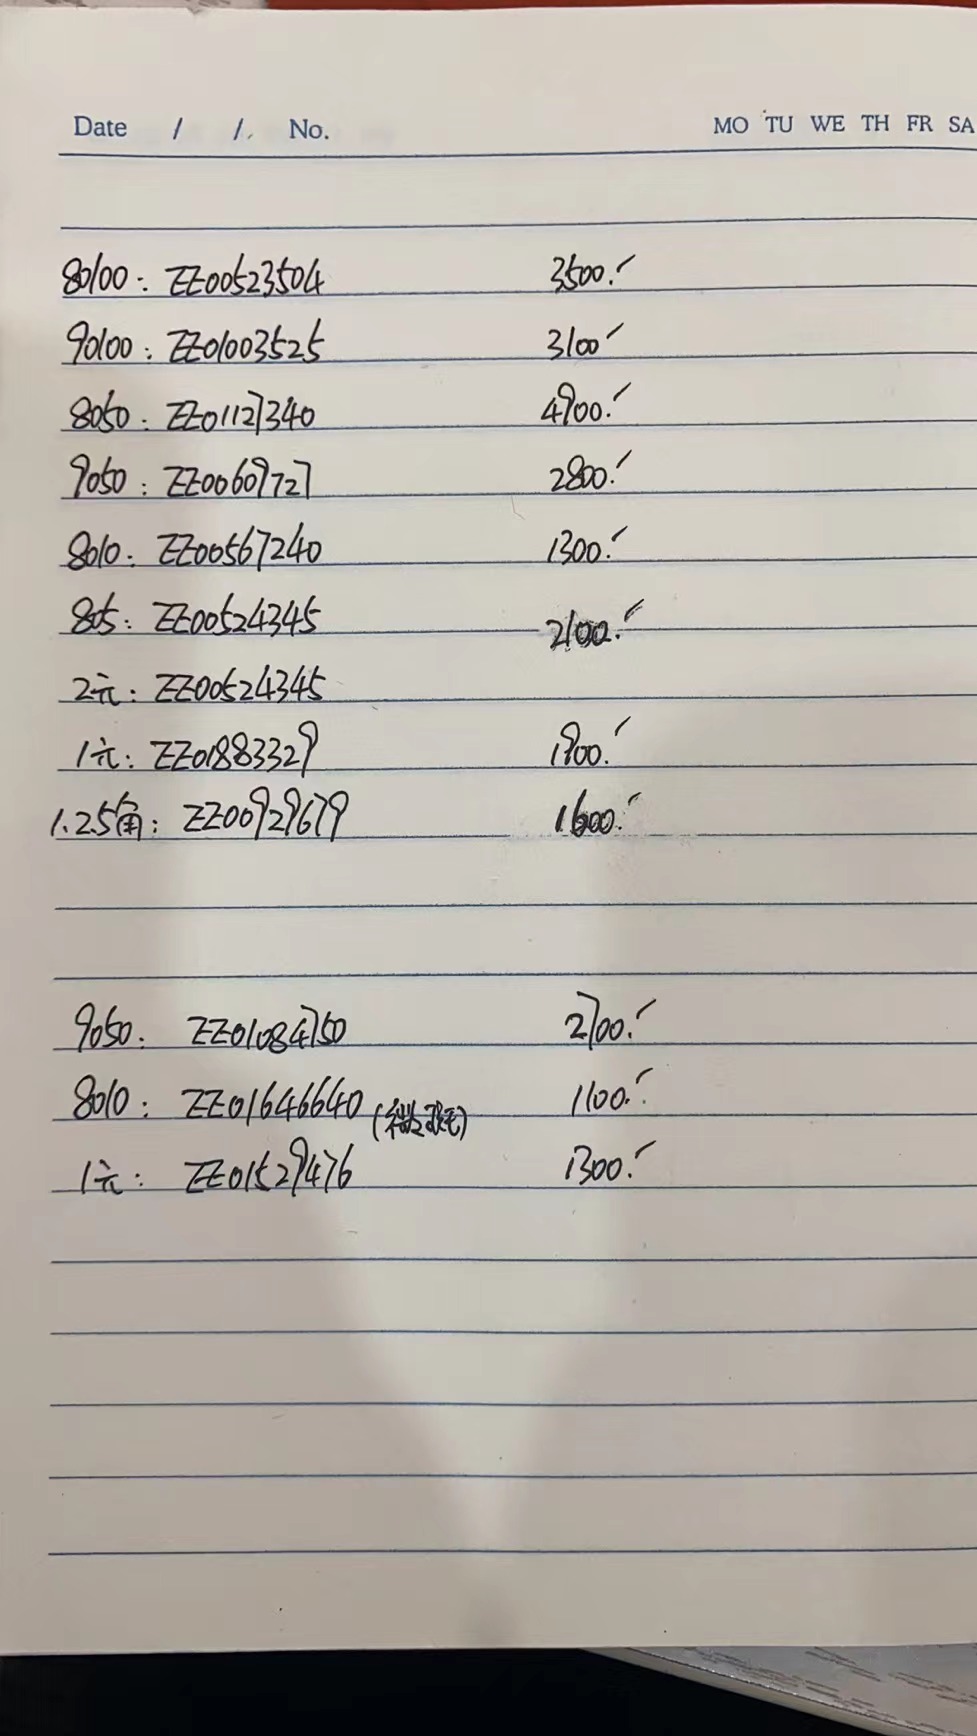 Date / / No. MO TU WE TH FR SA
80100: ZZ00523504 3500.✓
90100: ZZ01003525 3100✓
8050: ZZ01127340 4900.✓
9050: ZZ00609727 2800.✓
8010: ZZ00567240 1300.✓
805: ZZ00524345 2100.✓
2元: ZZ00524345
1元: ZZ01883329 1900.✓
1.2.5角: ZZ00929679 1600.✓
9050: ZZ01084750 2700.✓
8010: ZZ01646640 (微瑕) 1100.✓
1元: ZZ01529476 1300.✓